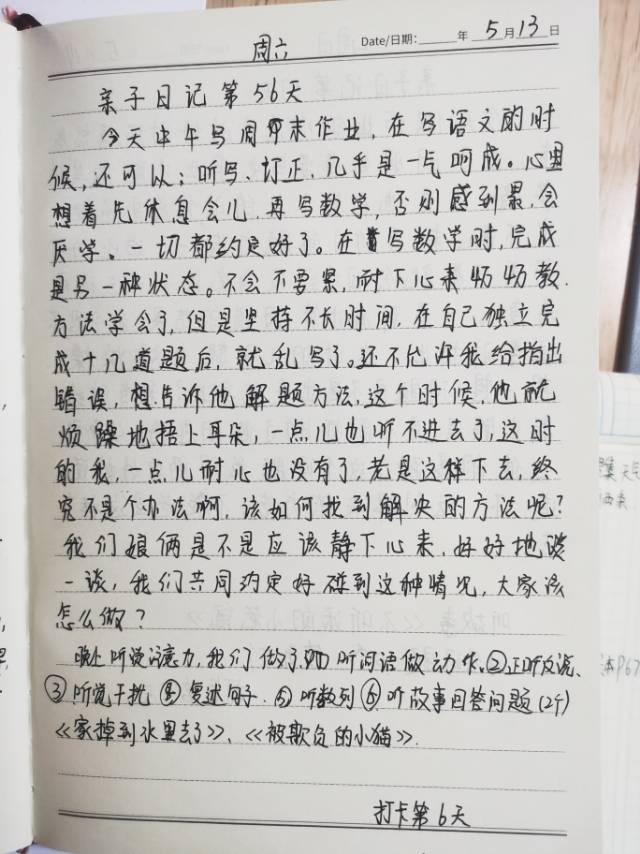 周六
Date/日期: 年 5月13日
亲子日记第56天
今天中午写周末作业,在写语文的时
候,还可以;听写、订正、几乎是一气呵成。心里
想着先休息会儿,再写数学,否则感到累,会
厌学、一切都约定好了。在写数学时,完成
是另一种状态。不会不要紧,耐下心来妈妈教.
方法学会了,但是坚持不长时间,在自己独立完
成十几道题后,就乱写了。还不允许我给指出
错误,想告诉他解题方法,这个时候,他就
烦躁地捂上耳朵,一点儿也听不进去了,这时
的我,一点儿耐心也没有了,老是这样下去,终
究不是个办法啊,该如何找到解决的方法呢?
我们娘俩是不是应该静下心来,好好地谈
一谈,我们共同约定好碰到这种情况,大家该
怎么做?
晚上听觉注意力,我们做了①听词语做动作。②正听反说、
③听觉干扰 ④复述句子.⑤听数列⑥听故事回答问题(2个)
《家掉到水里去了》、《被欺负的小猫》.
打卡第6天
本P67